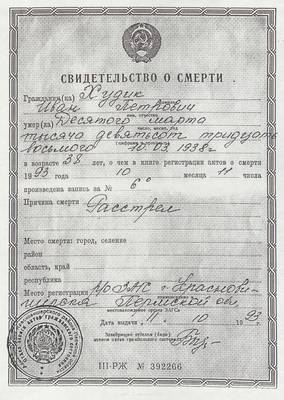 СВИДЕТЕЛЬСТВО О СМЕРТИ
Гражданин(ка) Худик
Иван Петрович
имя, отчество
умер(ла) Десятого марта
число, месяц, год
тысяча девятьсот тридцать
восьмого 10.03.1938г.
в возрасте 38 лет, о чем в книге регистрации актов о смерти
1993 года 10 месяца 11 числа
произведена запись за № 6
Причина смерти Расстрел
Место смерти: город, селение
район
область, край
республика
Место регистрации г. Красноки-
Пермской
местонахождение органа ЗАГСа
Дата выдачи 10 1993 г.
Заведующий отделом (бюро)
записи актов гражданского состояния
III-РЖ № 392266